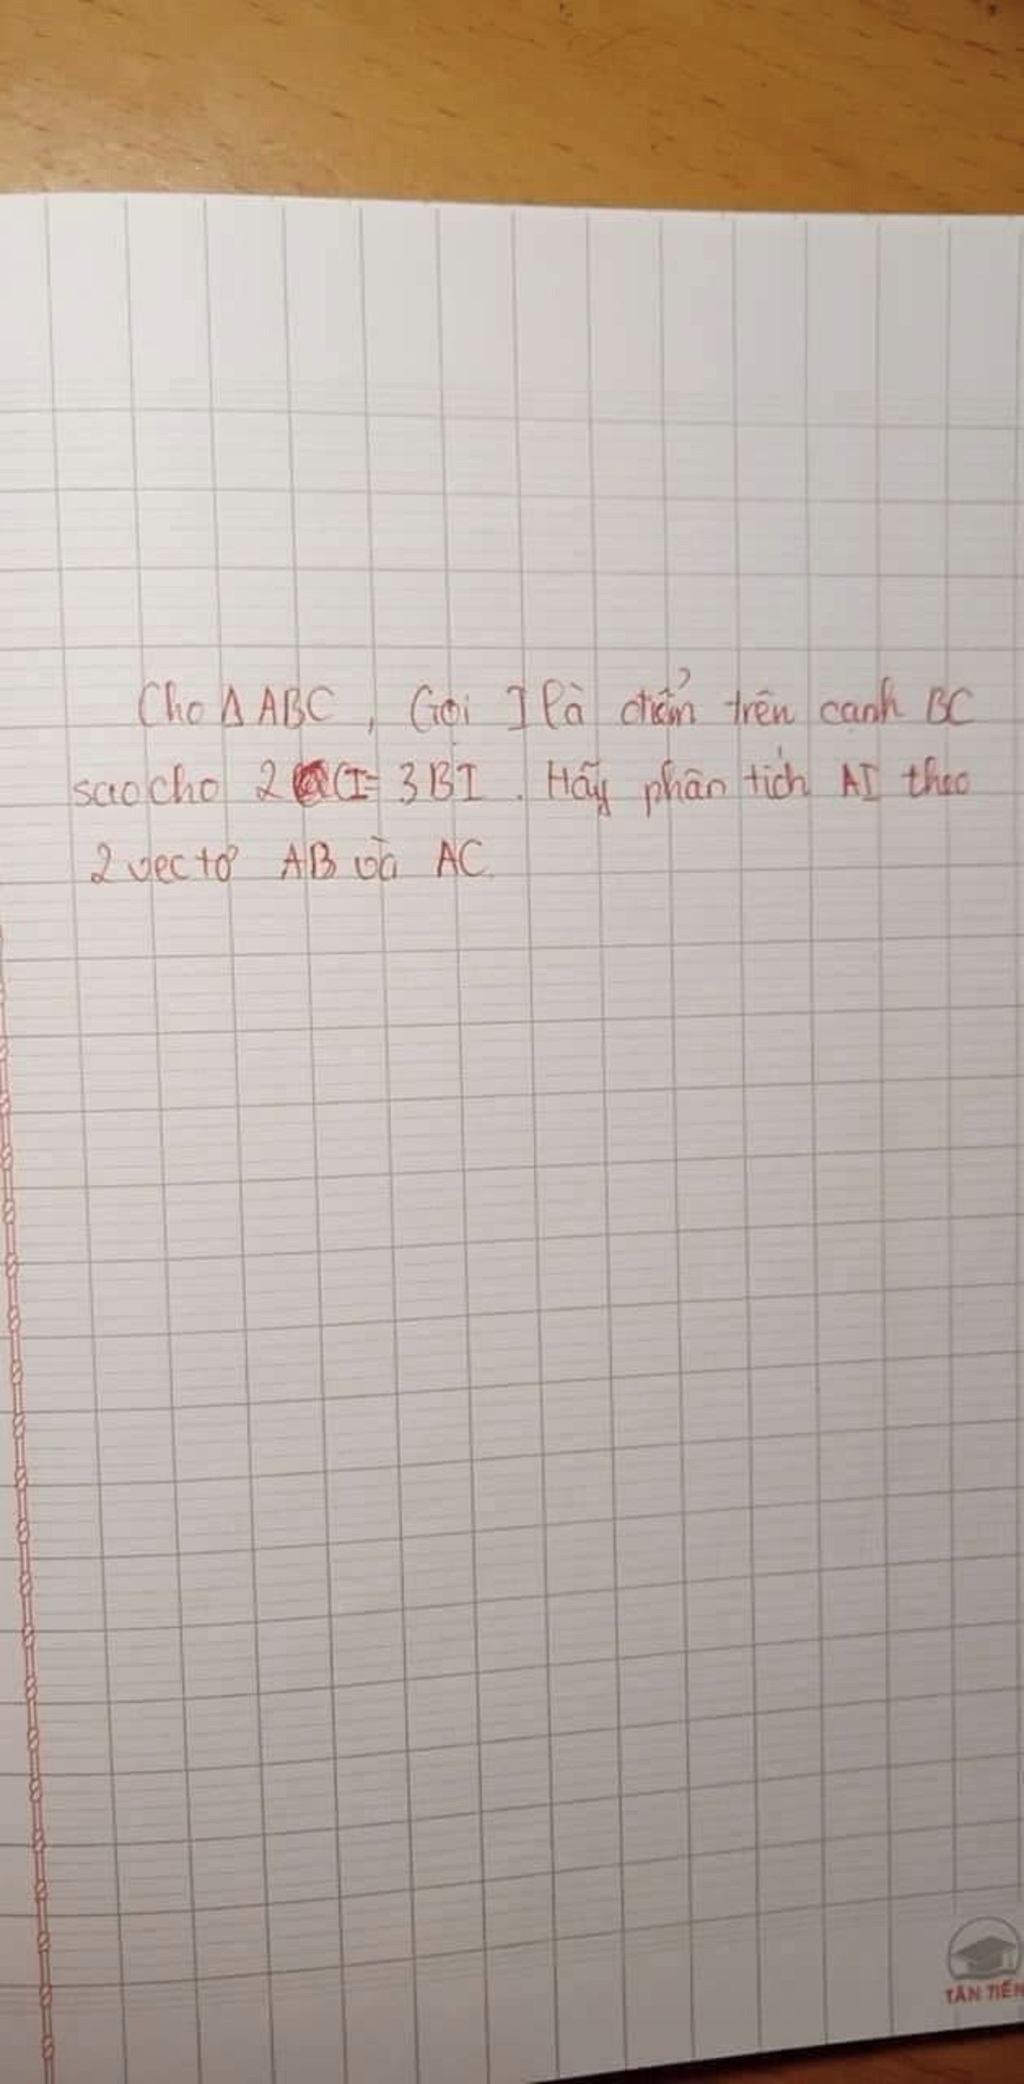 Cho Δ ABC, Gọi I là điểm trên cạnh BC
sao cho 2 CI = 3BI. Hãy phân tích AI theo
2 vectơ AB và AC.
TÂN TIẾN